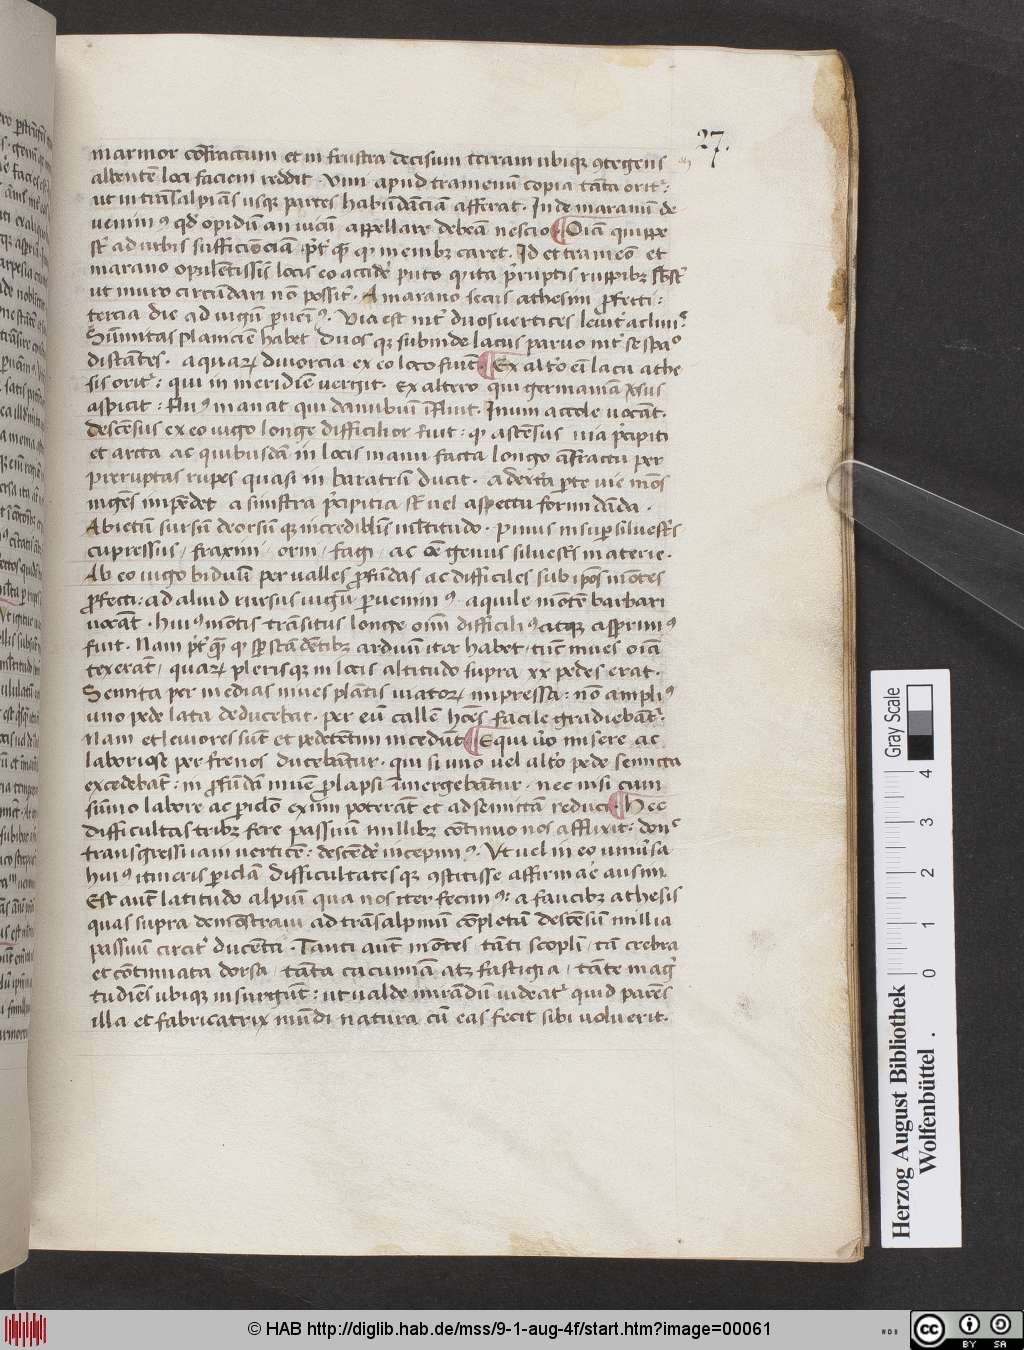 27.
marmor cōfractum et in frustra decisum terram ubiqꝫ ꝯtegens
albentē loci faciem reddit. Vini apud tramenū copia tāta oritᷣ:
ut in trāsalpīas usqꝫ partes habūdāciā afferat. Inde maranū de
uenimꝰ qd̄ opidū an uicū appellare debeā nescio ¶ Oīa quippe
st̄ ad urbis sufficiēciā p̄tᷣ qꝫ qꝙ menibꝫ caret. Id et trameno et
marano opulētissīs locis eo accidē puto qꝙ ita p̄ruptis ruppibꝫ sb̄st̄
ut muro circūdari nō possītᷣ. A marano secus athesim ꝓfecti:
tercia die ad iugū ꝑuenīꝰ. Via est intᷣ duos uertices leuitᷣ acliuiᷤ.
Sūmitas planiciē habet duos qꝫ subinde lacus paruo intᷣ se spaᵒ
distātes. aquarꝝ diuorcia ex eo loco fiūt. ¶ Ex altᵒo eī lacu athe
sis oritᷣ: qui in meridiē vergit. Ex altero qui germaniam usus
aspicit: fluꝰ manat qui danubiuī īfluit. Inum accole uocāt.
descēsus ex eo iugo longe difficilior fuit: qꝙ ascēsus uia p̄cipiti
et arcta ac quibusdā in locis manu facta longo āfractu per
preruptas rupes quasi in baratrū ducit. a dextᵃa ꝑte uie mōs
ingēs impēdet a sinistra p̄cipitia st̄ uel aspectu formidāda.
Abietū sursū deorsū qꝫ incredibl̄is ml̄titudo. pinus insuꝑ siluestᷤs
cupressus / fraxini / orni / fagi / ac oē genus siluestᷤs materie.
Ab eo iugo biduū per ualles ꝓfūdas ac difficiles sub ipōs mōtes
ꝓfecti: ad aliud rursus iugū ꝑuenimꝰ aquile mōtē barbari
uocāt. huiꝰ mōtis trāsitus longe oīm difficiliꝰ atqꝫ asprimꝰ
fuit. Nam p̄tᷣ qꝫ qꝙ sp̄ stādētibꝫ arduū iter habet / tūc niues oīā
texerāt / quarꝝ plerisqꝫ in locis altitudo supra xx pedes erat.
Semita per medias niues plātis uiatorꝝ impressa: nō ampliꝰ
uno pede lata deducebat. per eū callē hoīes facile gradiebātᷣ.
Nam et leuiores sūt et pedetētim incedūt ¶ Equi uᵒo misere ac
laboriose per frenos ducebātur. qui si uno uel altᵒo pede semita
excedebāt: in ꝓfūdā niuē prolapsi īmergebātur. nec nisi cum
sūmo labore ac ꝑiclō eximi poterāt et ad semitā reduci ¶ Hec
difficultas tribꝫ fere passuū millibꝫ cōtinuo nos afflixit: donᶜ
transgressi iam uerticē: descēdē incepimꝰ. Vt uel in eo uniūsa
huiꝰ itineris ꝑiclā difficultates qꝫ ꝯstitisse affirmāe ausim.
Est aūt latitudo alpiū qua nos iter fecimꝰ: a faucibꝫ athesis
quas supra demōstraui ad trāsalpinū cōpletū descēsū milia
passuū circitᷣ ducenti. Tanti aūt mōtes tāti scopli / tā crebra
et cōtinuata dorsa / tāta cacumīa atqꝫ fastigia / tāte mag̅
tudiēs ubiqꝫ insurgūt: ut ualde mirādū uideatᷣ quid parēs
illa et fabricatrix mūdi natura cū eas fecit sibi uoluerit.
Gray Scale
0 1 2 3 4
Herzog August Bibliothek
Wolfenbüttel .
© HAB http://diglib.hab.de/mss/9-1-aug-4f/start.htm?image=00061
WDB
cc BY SA